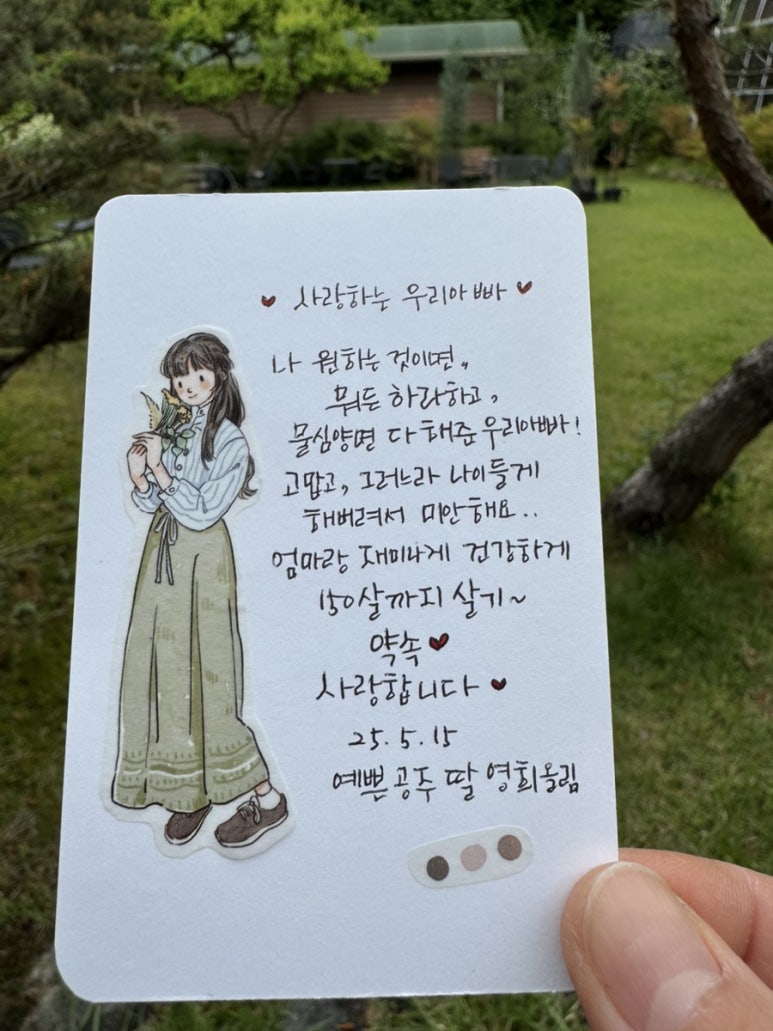 ♥ 사랑하는 우리아빠 ♥
나 원하는 것이면,
뭐든 하라하고,
물심양면 다해준 우리아빠!
고맙고, 그러느라 나이들게
해버려서 미안해요..
엄마랑 재미나게 건강하게
150살까지 살기~
약속♥
사랑합니다 ♥
25.5.15
예쁜공주 딸 영희올림